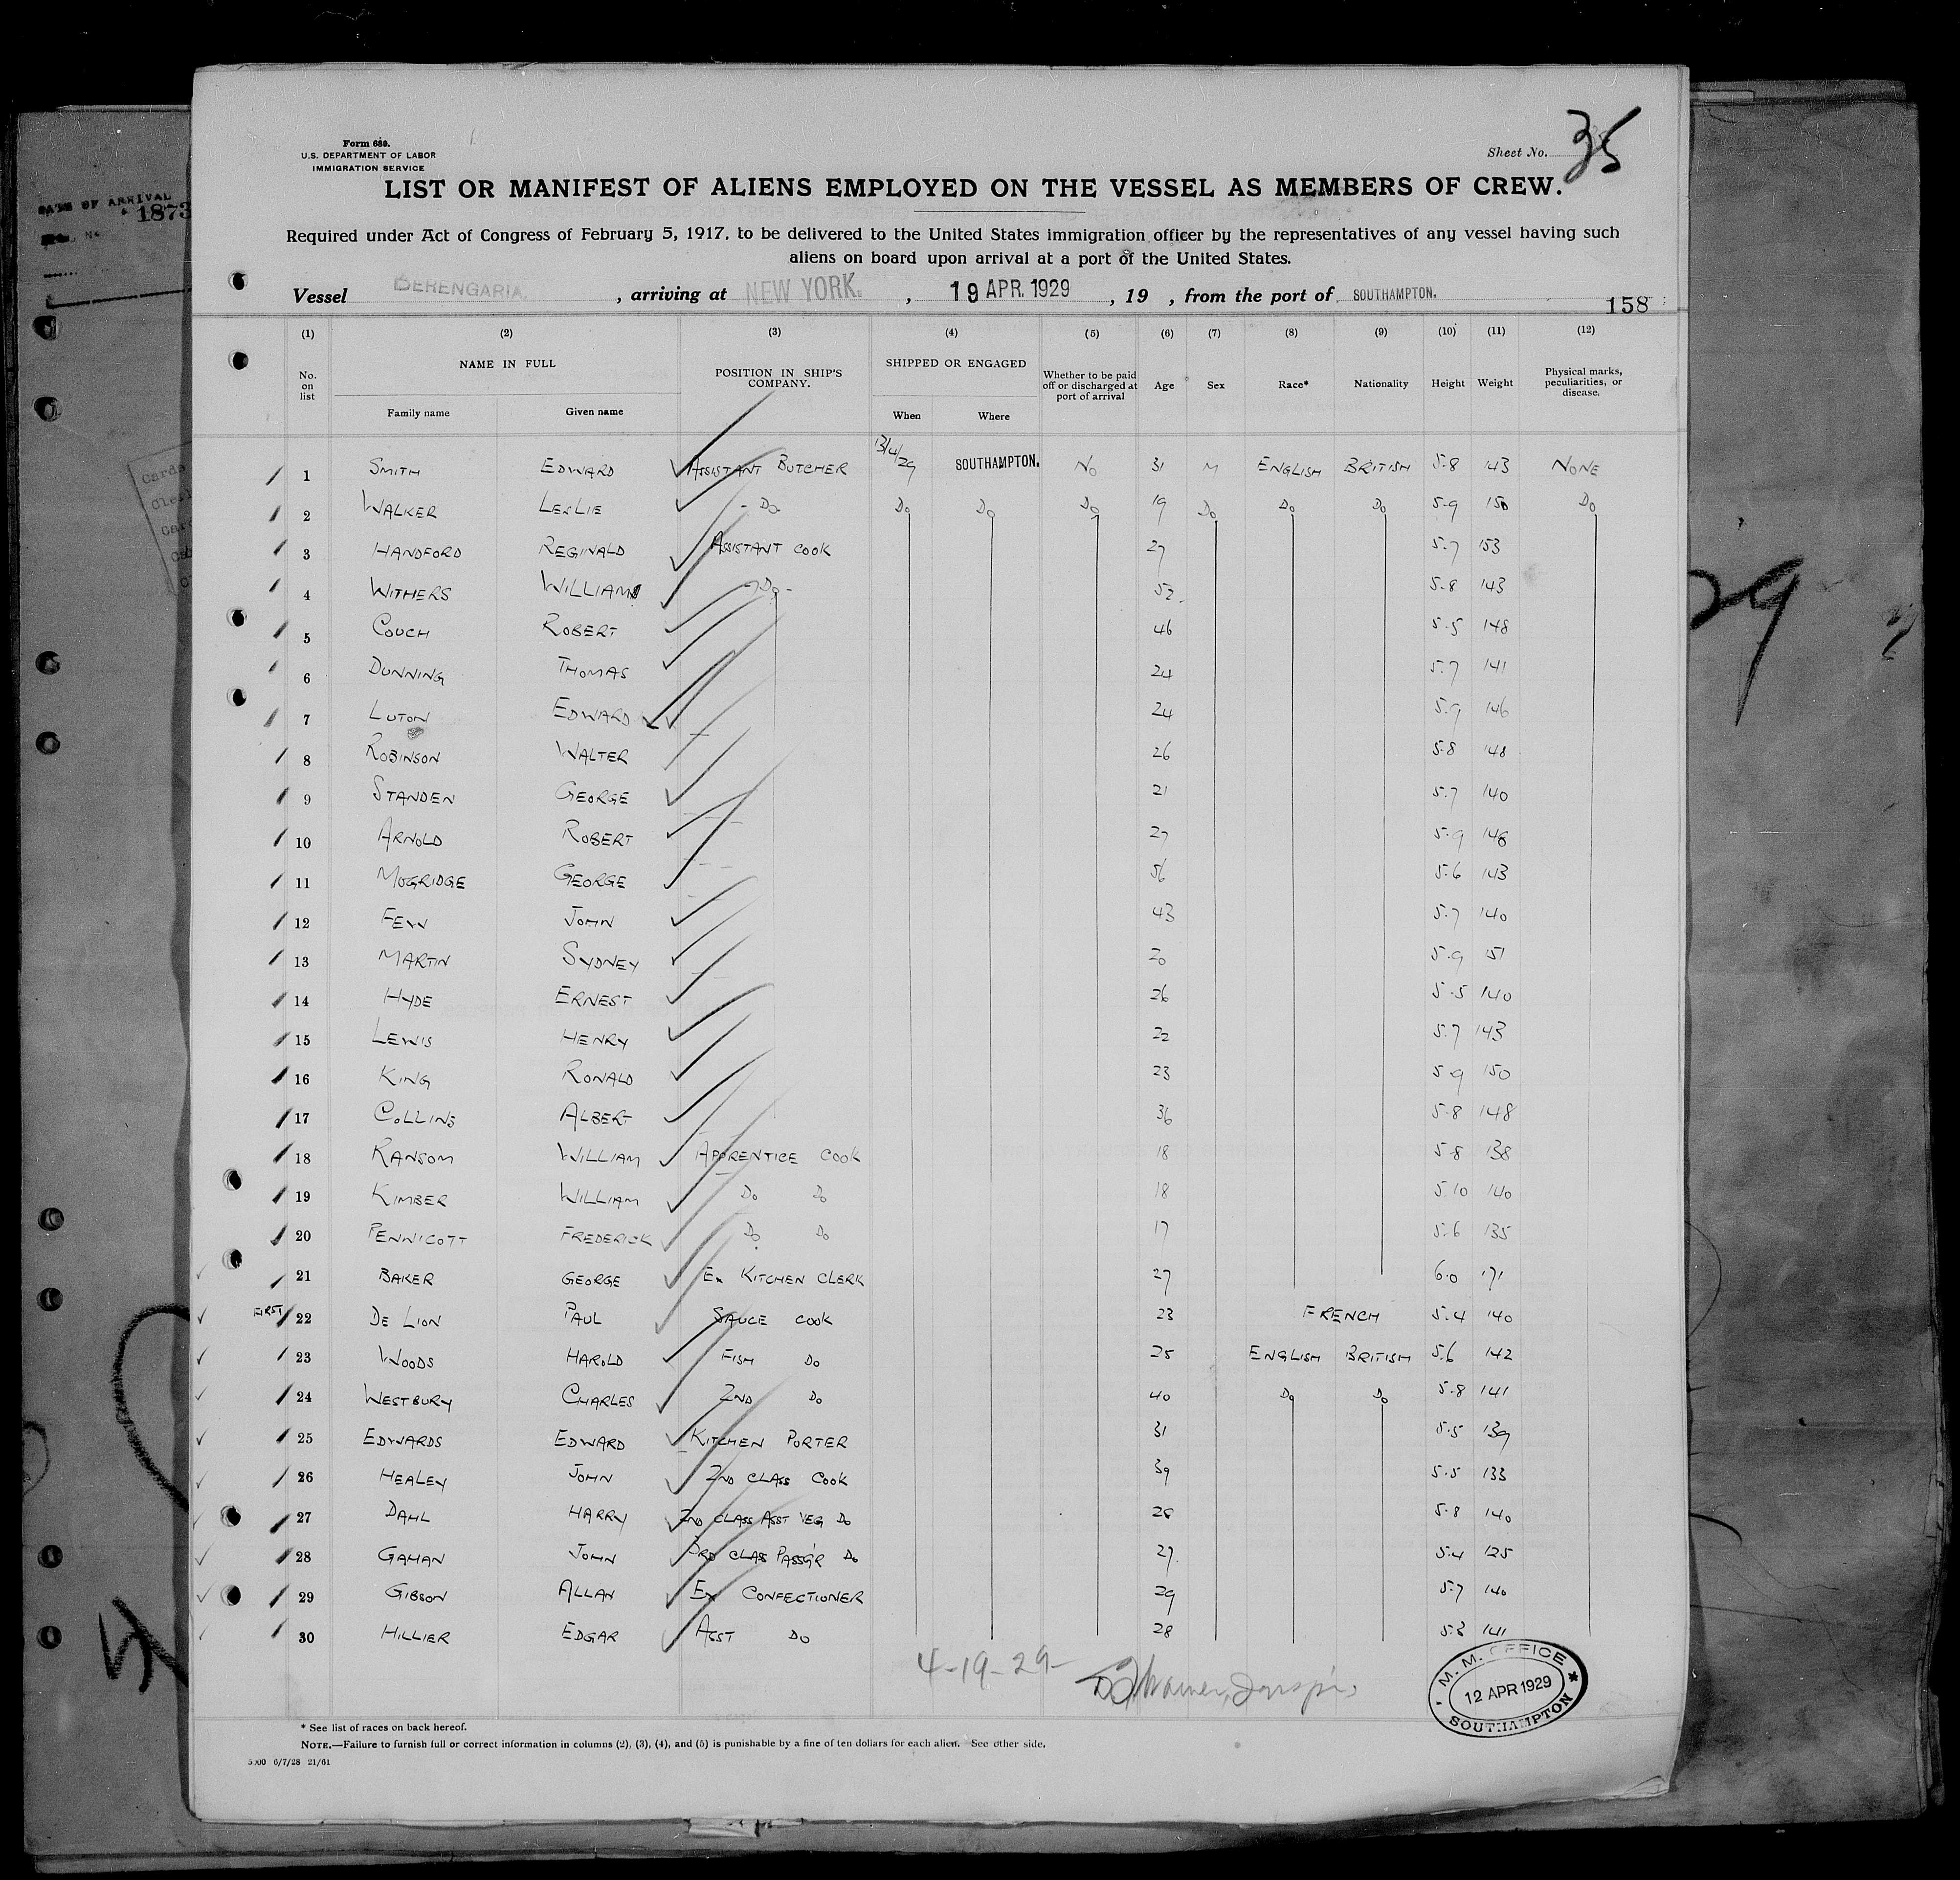 DATE OF ARRIVAL
1873
Form 680.
U.S. DEPARTMENT OF LABOR
IMMIGRATION SERVICE
Sheet No. 35
LIST OR MANIFEST OF ALIENS EMPLOYED ON THE VESSEL AS MEMBERS OF CREW.
Required under Act of Congress of February 5, 1917, to be delivered to the United States immigration officer by the representatives of any vessel having such
aliens on board upon arrival at a port of the United States.
Vessel BERENGARIA, arriving at NEW YORK. , 19 APR. 1929 , 19 , from the port of SOUTHAMPTON.
158
(1) (2) (3) (4) (5) (6) (7) (8) (9) (10) (11) (12)
No. on list NAME IN FULL Family name Given name POSITION IN SHIP'S COMPANY. SHIPPED OR ENGAGED When Where Whether to be paid off or discharged at port of arrival Age Sex Race* Nationality Height Weight Physical marks, peculiarities, or disease.
1 SMITH EDWARD ASSISTANT BUTCHER 13/4/29 SOUTHAMPTON. NO 31 M ENGLISH BRITISH 5-8 143 NONE
2 WALKER LESLIE - Do Do Do Do 19 Do Do Do 5-9 150 Do
3 HANDFORD REGINALD ASSISTANT COOK 27 5-7 153
4 WITHERS WILLIAM - Do - 52 5-8 143
5 COUCH ROBERT 46 5-5 148
6 DUNNING THOMAS 24 5-7 141
7 LUTON EDWARD 24 5-9 146
8 ROBINSON WALTER 26 5-8 148
9 STANDEN GEORGE 21 5-7 140
10 ARNOLD ROBERT 27 5-9 148
11 MOGRIDGE GEORGE 56 5-6 143
12 FEW JOHN 43 5-7 140
13 MARTIN SYDNEY 20 5-9 151
14 HYDE ERNEST 26 5-5 140
15 LEWIS HENRY 22 5-7 143
16 KING RONALD 23 5-9 150
17 COLLINS ALBERT 36 5-8 148
18 RANSOM WILLIAM APPRENTICE COOK 18 5-8 138
19 KIMBER WILLIAM Do Do 18 5-10 140
20 PENNICOTT FREDERICK Do Do 17 5-6 135
21 BAKER GEORGE Ex KITCHEN CLERK 27 6-0 171
FIRST 22 DE LION PAUL SAUCE COOK 23 FRENCH 5-4 140
23 WOODS HAROLD FISH Do 25 ENGLISH BRITISH 5-6 142
24 WESTBURY CHARLES 2ND Do 40 Do Do 5-8 141
25 EDWARDS EDWARD KITCHEN PORTER 31 5-5 139
26 HEALEY JOHN 2ND CLASS COOK 39 5-5 133
27 DAHL HARRY 2ND CLASS ASST VEG Do 28 5-8 140
28 GAHAN JOHN 3RD CLASS PASS'GR Do 27 5-4 125
29 GIBSON ALLAN Ex CONFECTIONER 29 5-7 140
30 HILLIER EDGAR ASST Do 28 5-8 141
4-19-29
M. M. OFFICE
12 APR 1929
SOUTHAMPTON
* See list of races on back hereof.
NOTE.—Failure to furnish full or correct information in columns (2), (3), (4), and (5) is punishable by a fine of ten dollars for each alien. See other side.
5000 6/7/28 21/61